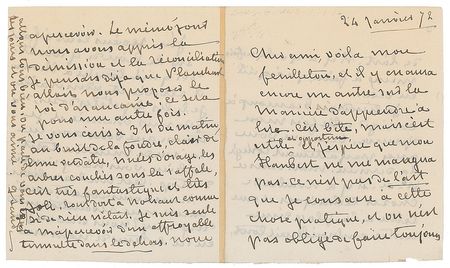 24 janvier 72
Cher ami voilà mon
feuilleton, et il y en aura
encore un autre sur la
manière d'apprendre à
lire. C'est bête, mais c'est
et opportun
utile. J'espère que mon
Flaubert ne me
pas. Ce n'est pas de l'art
que je consacre à cette
chose pratique, et on n'est
pas obligé de faire toujours
apercevoir. Le même jour
nous avons appris la
démission et la réconciliation
Je pensais déjà que Plauchut
allait nous proposer le
roi d'araucanie. Ce sera
pour une autre fois.
Je vous écris à 3 h du matin
au bruit de la foudre,
nuées d'orage, les
arbres couchés sous la rafale,
c'est très fantastique et très
joli. tout dort à Nohant comme
si de rien n'était. Je suis seule
à m'apercevoir d'un effroyable
tumulte dans le dehors. nous
allons tous bien, on parle de vous tous
les jours et on vous aime. G Sand